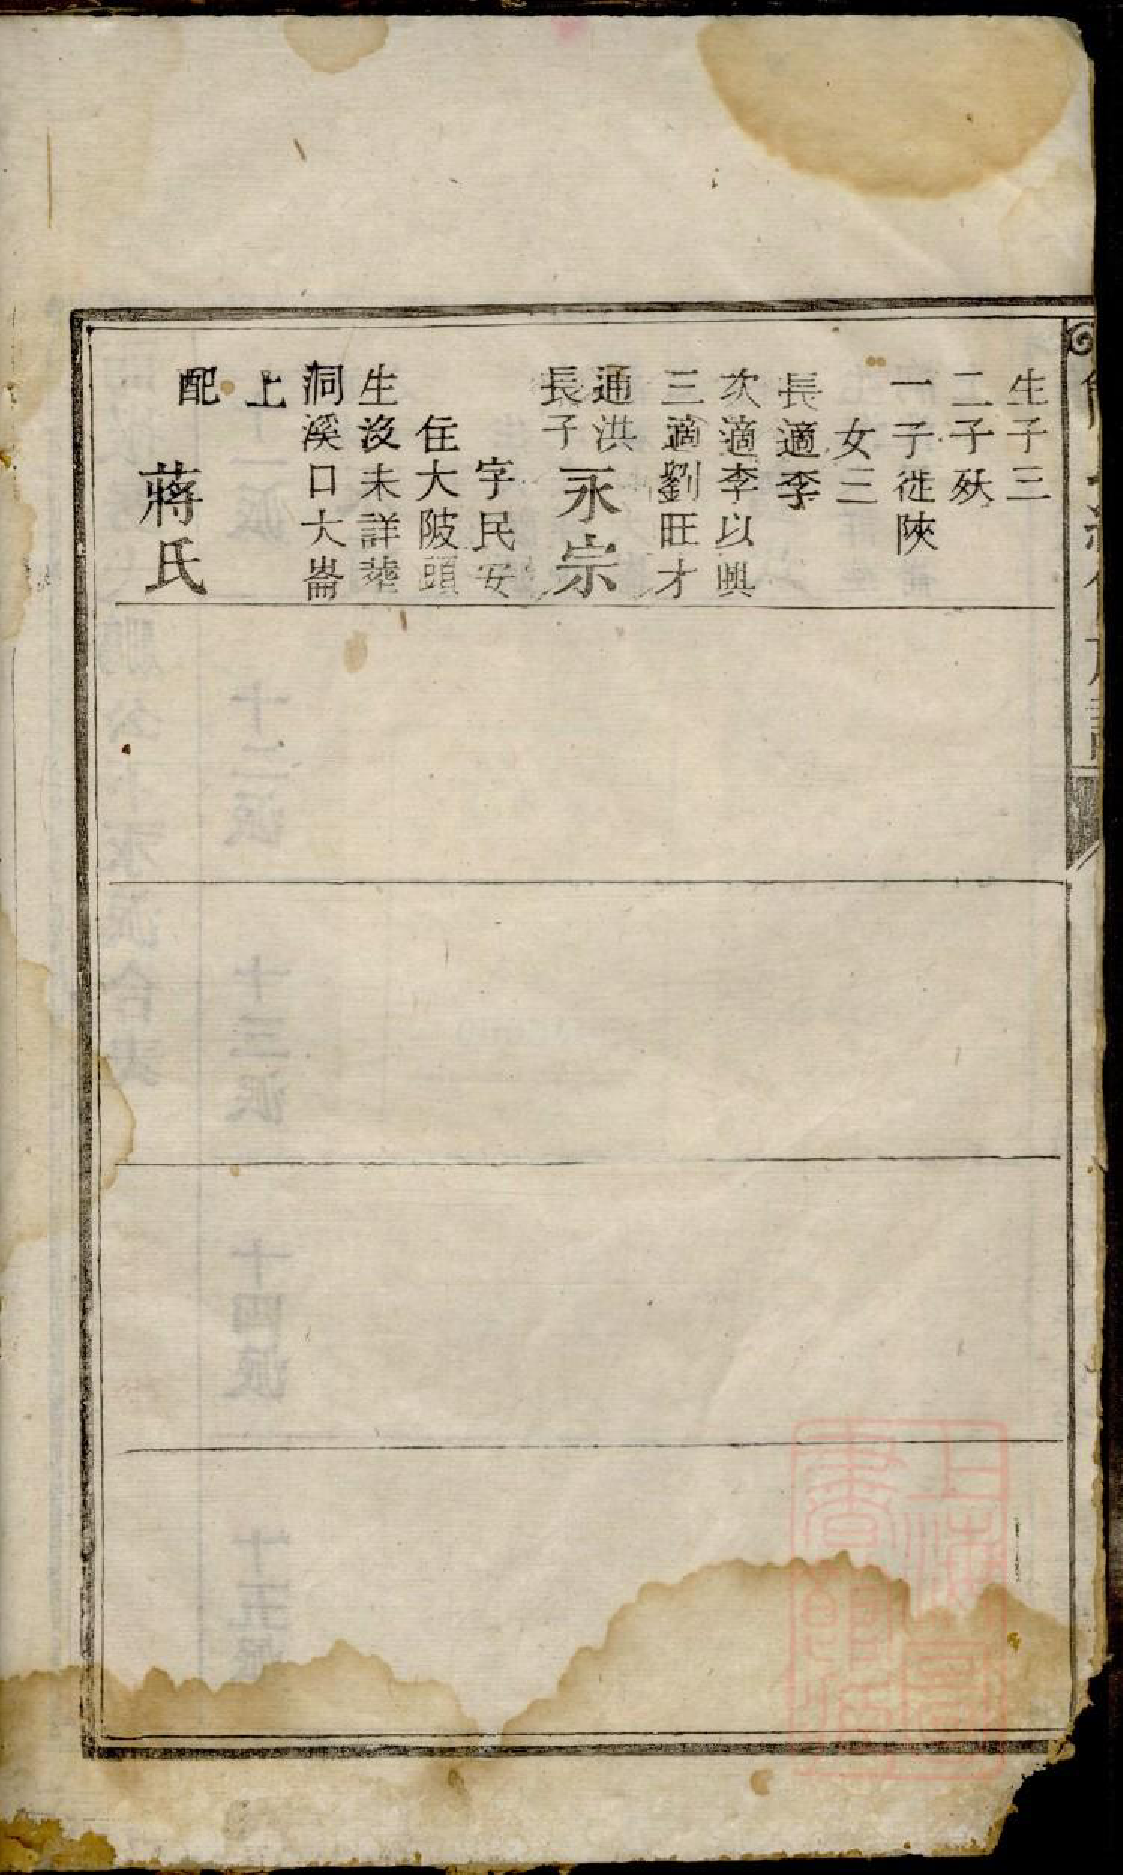 生子三
二子殀
一子徙陝
女三
長適李
次適李以興
三適劉旺才
通洪
長子永宗
字民安
住大陂頭
生沒未詳葬
洞溪口大崙
上
配蔣氏